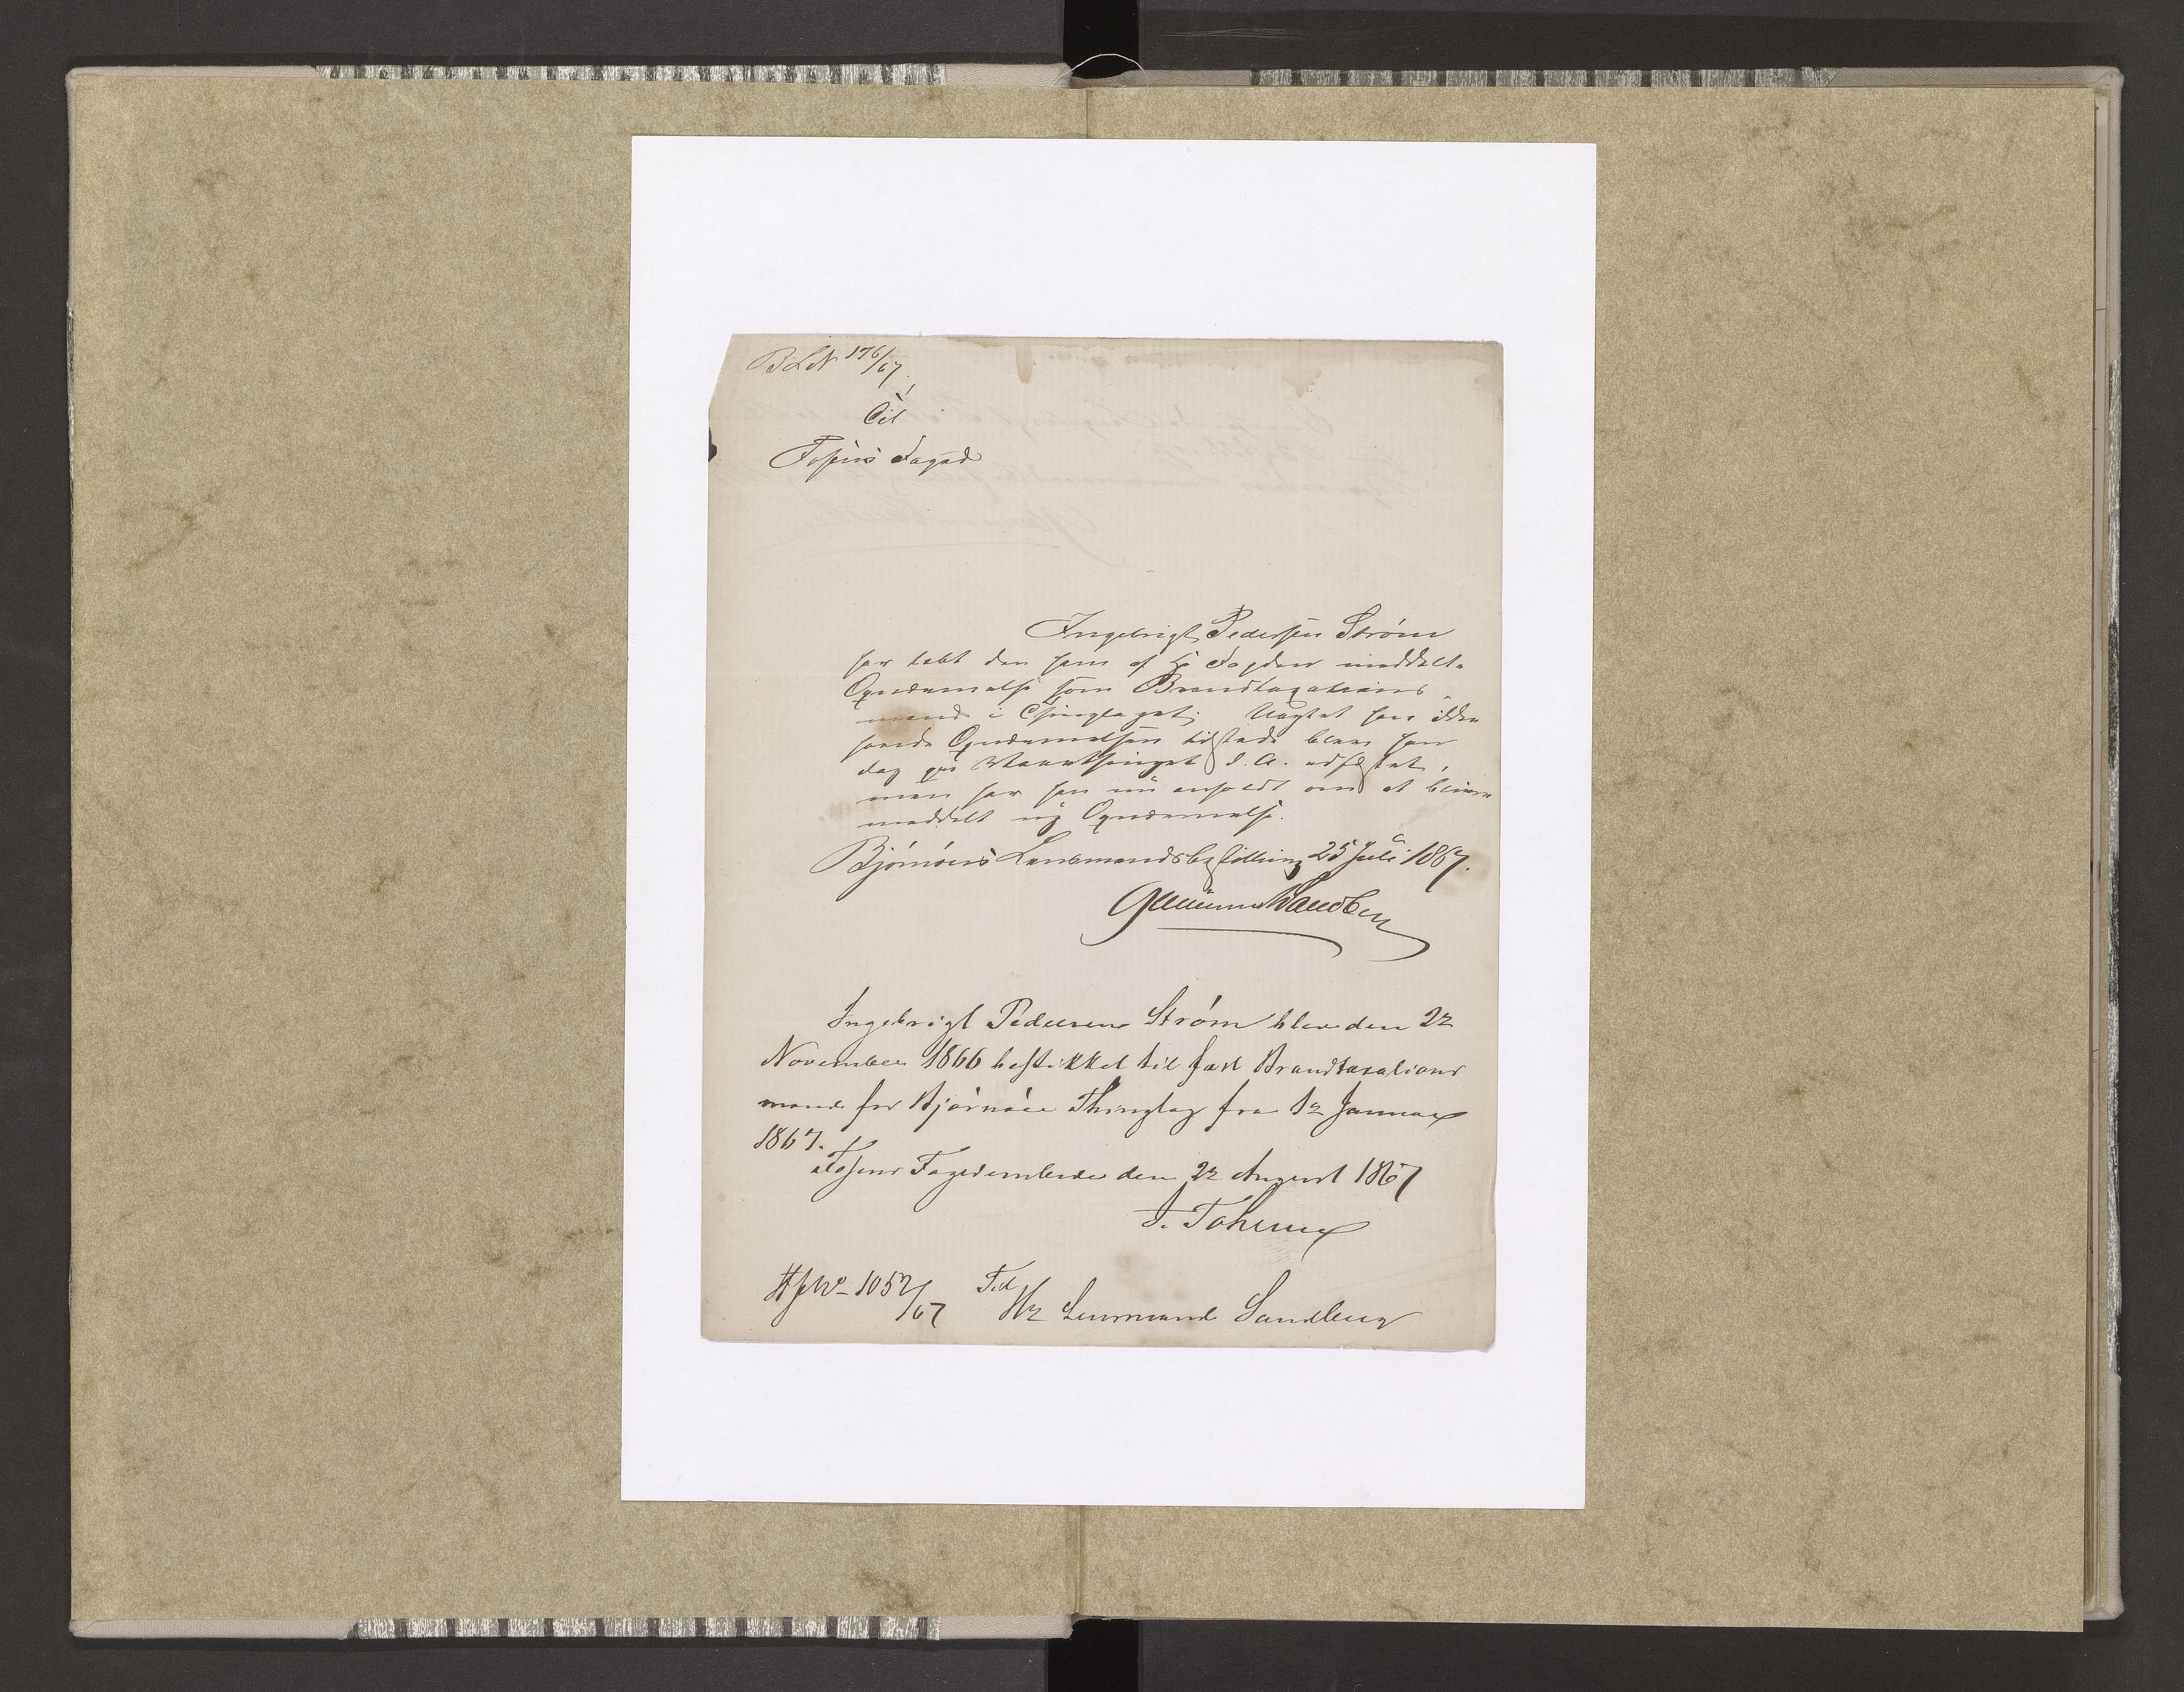 BLN 176/67.
Til
Fosens Foged
Ingebrigt Pedersen Strøm
har tabt den ham af Hr Fogden meddelte
Opnævnelse som Brandtaxations-
mand i Thinglaget; Uagtet han ikke
havde Opnævnelsen tilstede blev han
dog paa Vaarthinget d. A.
men har han nu anholdt om at blive
meddelt ny Opnævnelse.
Bjørnøers Lensmandsbestilling 25 Juli 1867.
Sandberg
Ingebrigt Pedersen Strøm blev den 22
November 1866 beskikket til fast Brandtaxations
mand for Bjørnøer Thinglag fra 1ste Januar
1867.
Fosens Fogedembede den 22 August 1867
HJNo 1052/67 Til
Hr Lensmand Sandberg